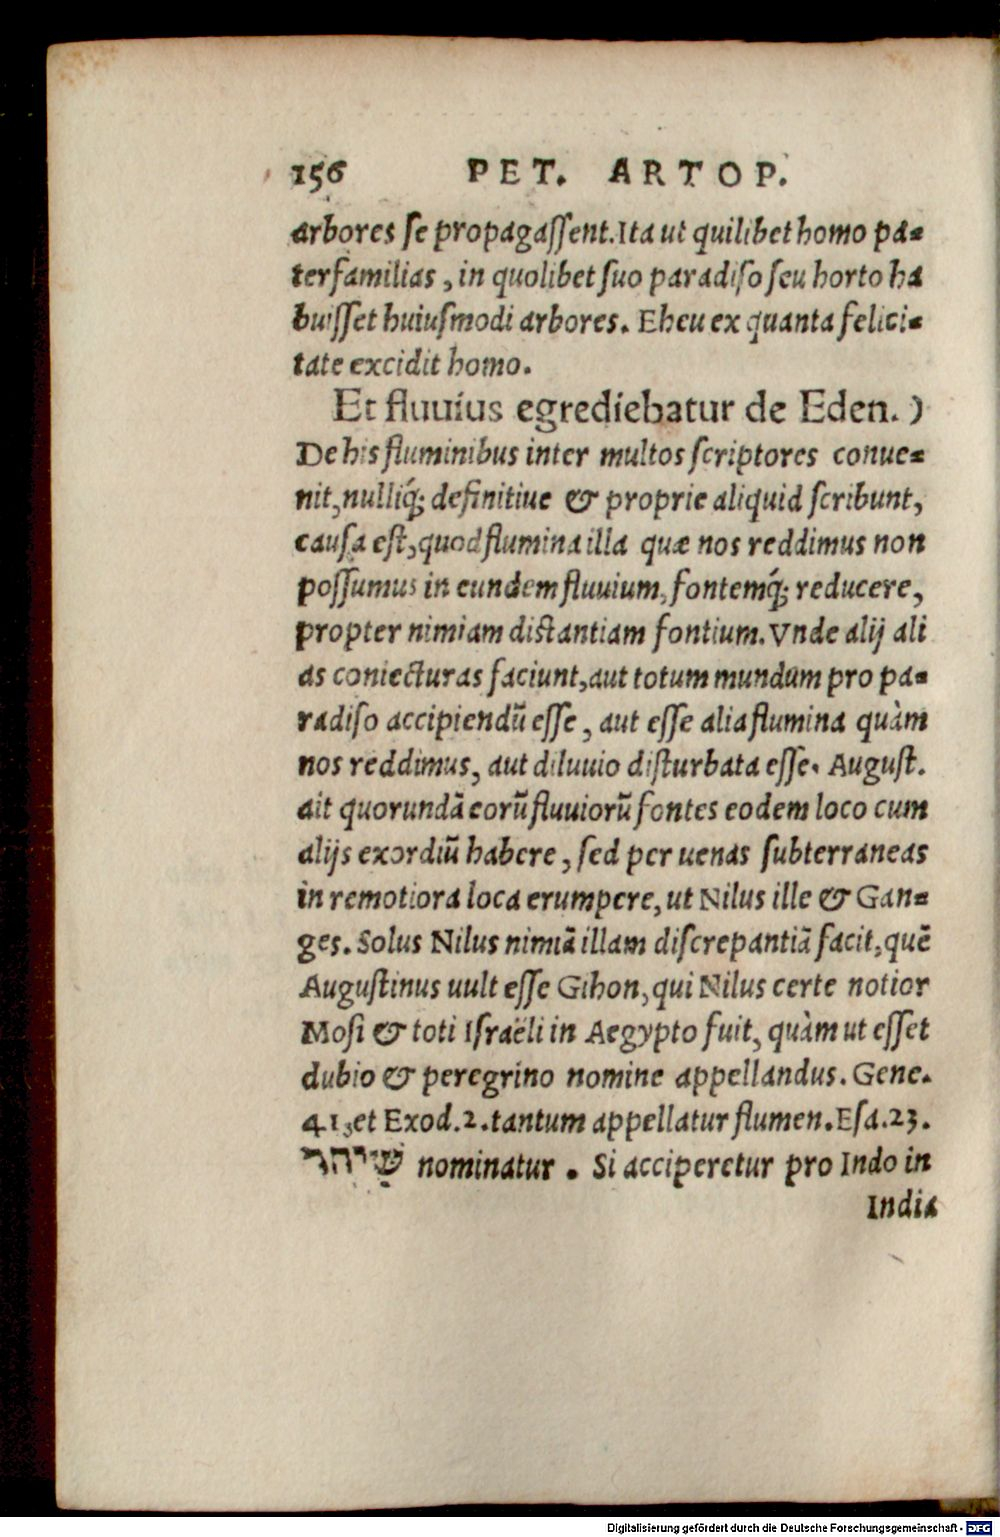 156 PET. ARTOP.
arbores ſe propagaſſent. Ita ut quilibet homo pa-
terfamilias, in quolibet ſuo paradiſo ſeu horto ha
buiſſet huiuſmodi arbores. Eheu ex quanta felici-
tate excidit homo.
Et fluuius egrediebatur de Eden. )
De his fluminibus inter multos ſcriptores conue-
nit, nulliq́; definitiue & proprie aliquid ſcribunt,
cauſa eſt, quod flumina illa quæ nos reddimus non
poſſumus in eundem fluuium, fontemq́; reducere,
propter nimiam diſtantiam fontium. Vnde alij ali
as coniecturas faciunt, aut totum mundum pro pa-
radiſo accipiendũ eſſe, aut eſſe alia flumina quàm
nos reddimus, aut diluuio diſturbata eſſe. Auguſt.
ait quorundã eorũ fluuiorũ fontes eodem loco cum
alijs exordiũ habere, ſed per uenas ſubterraneas
in remotiora loca erumpere, ut Nilus ille & Gan-
ges. Solus Nilus nimiã illam diſcrepantiã facit, quẽ
Auguſtinus uult eſſe Gihon, qui Nilus certe notior
Moſi & toti Iſraëli in Aegypto fuit, quàm ut eſſet
dubio & peregrino nomine appellandus. Gene.
41, et Exod. 2. tantum appellatur flumen. Eſa. 23.
nominatur. Si acciperetur pro Indo in
India
Digitalisierung gefördert durch die Deutsche Forschungsgemeinschaft - DFG